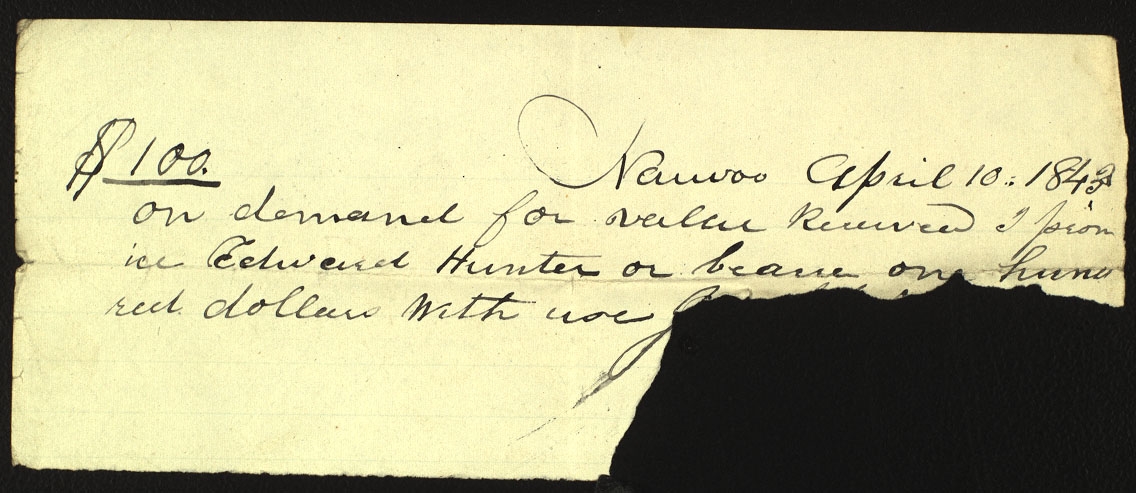 $100.
Nauvoo April 10: 1843
on demand for value Received I prom
ice Edward Hunter or beare one hund
red dollars With use